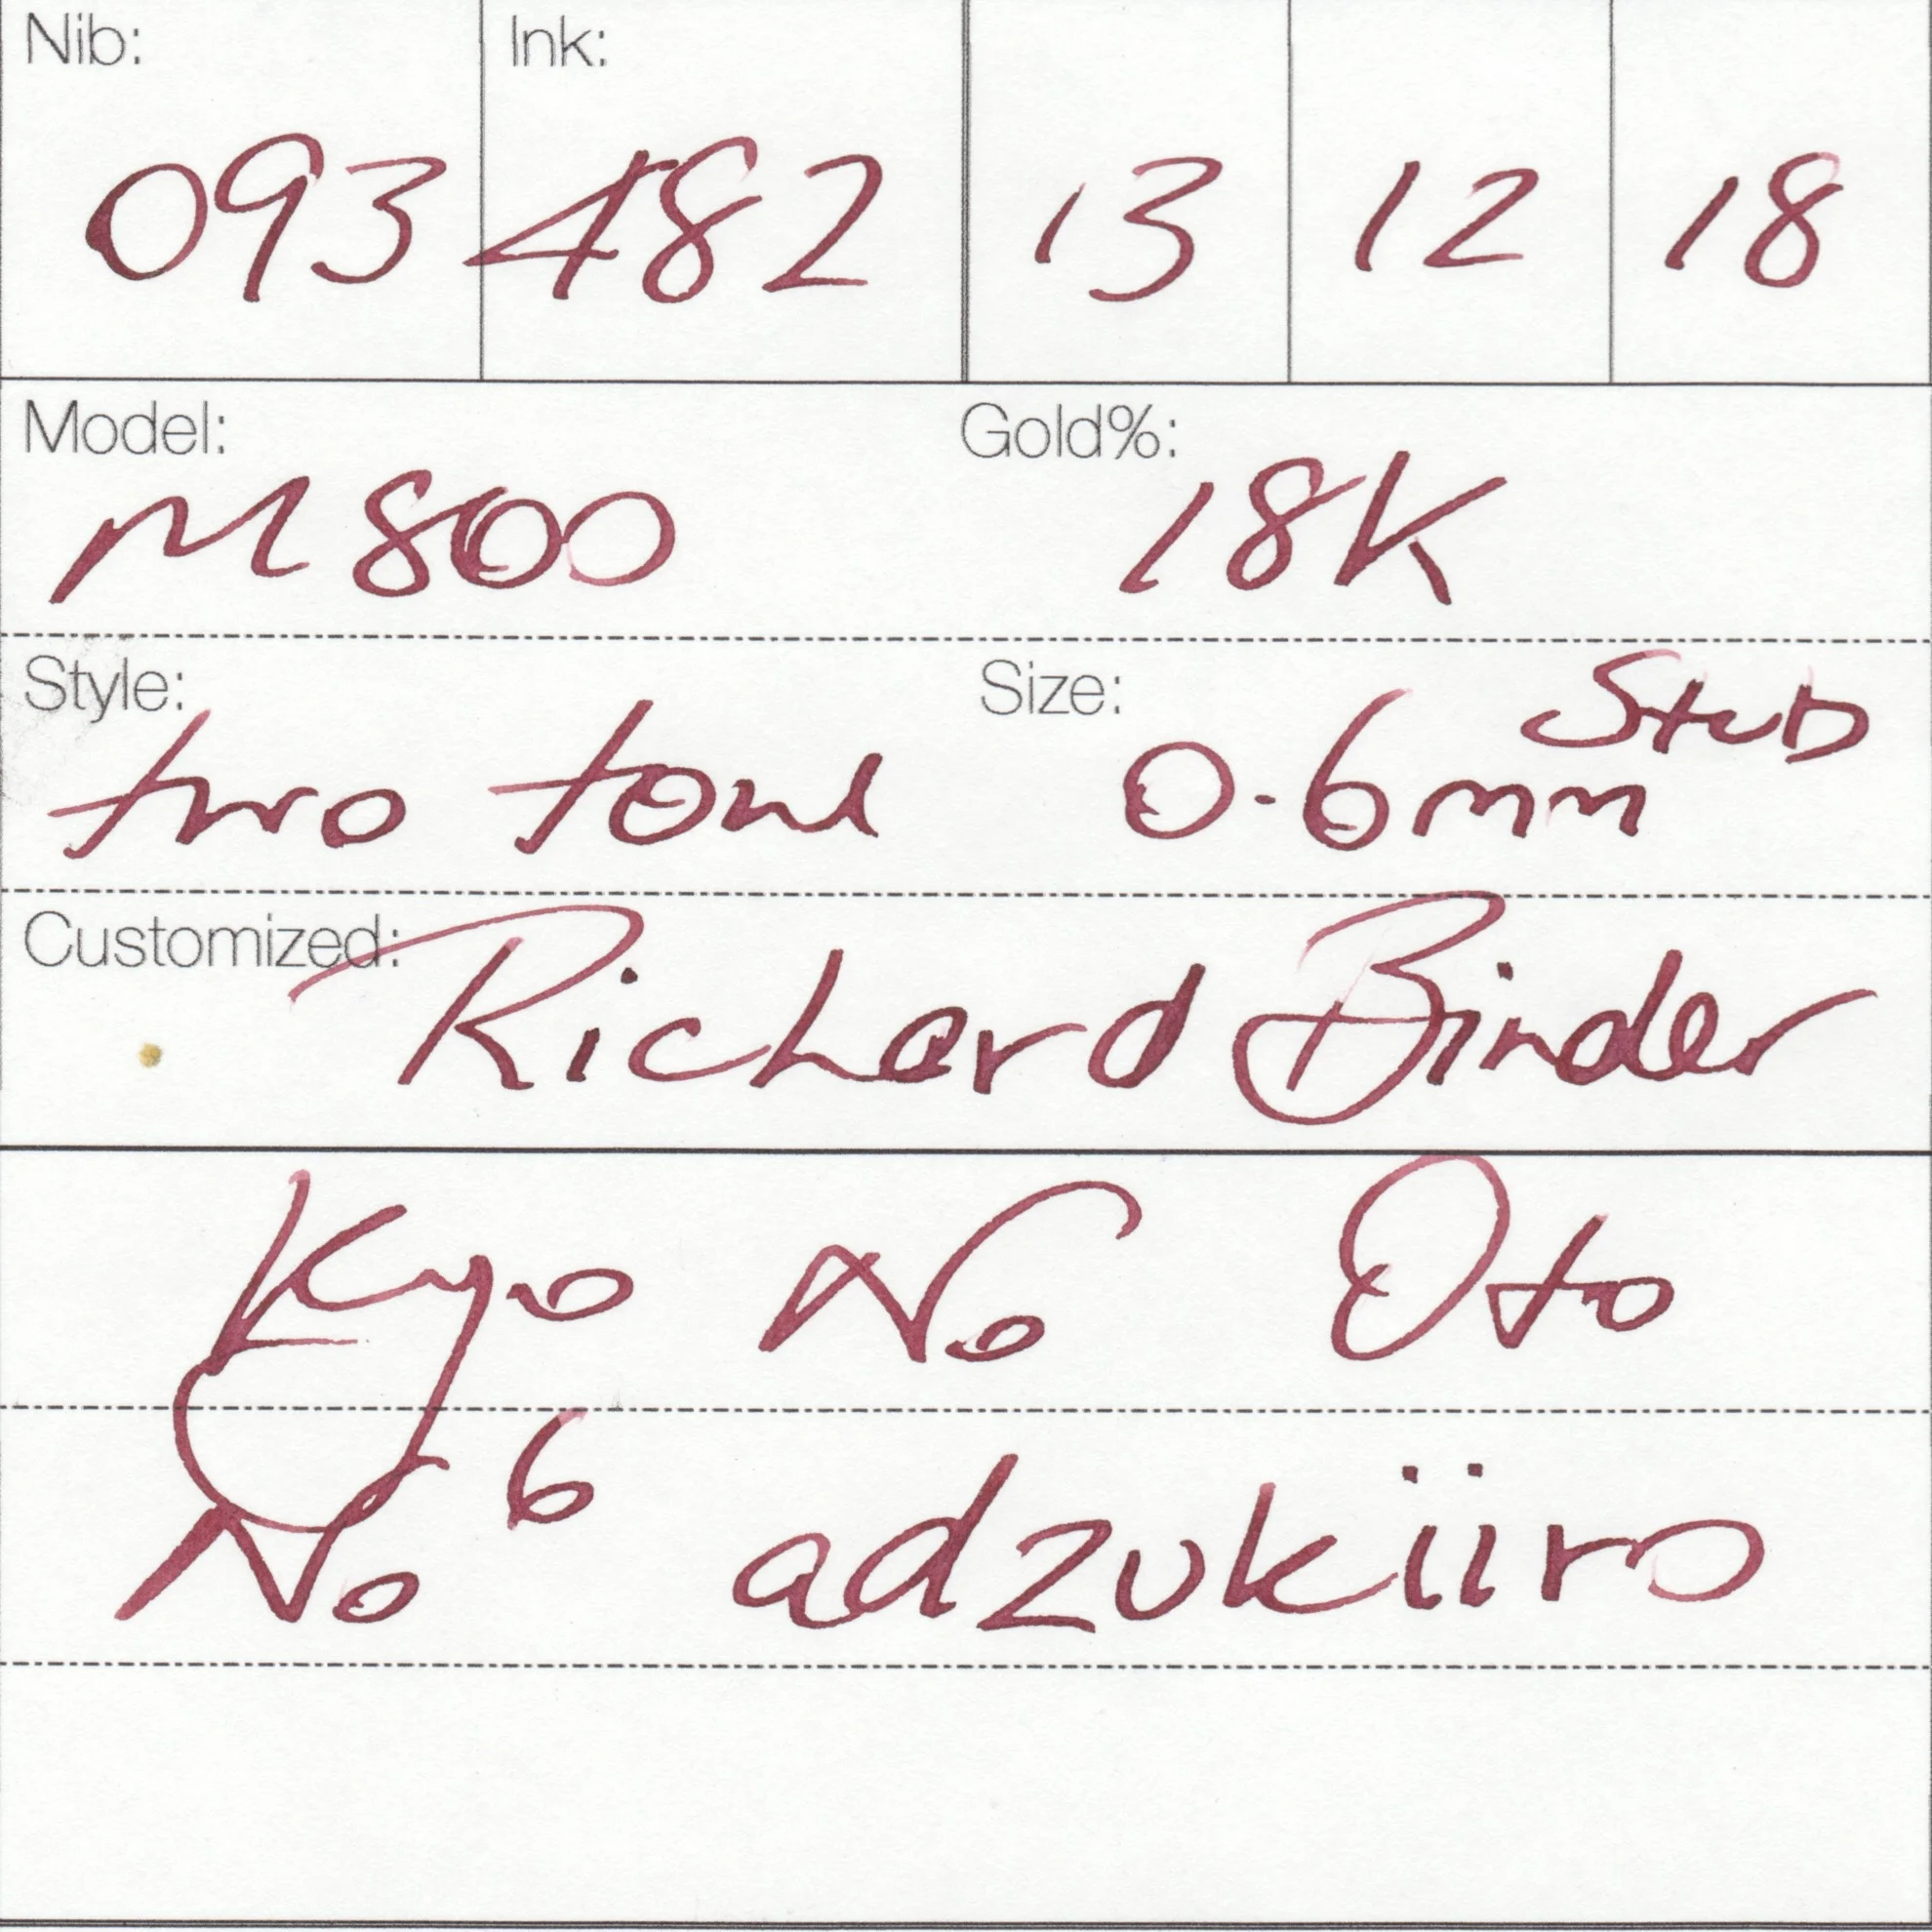 Nib: Ink:
093 482 13 12 18
Model: Gold%:
M800 18K
Style: Size: Stub
two tone 0.6mm
Customized: Richard Binder
Kyo No Oto
No 6 adzukiiro